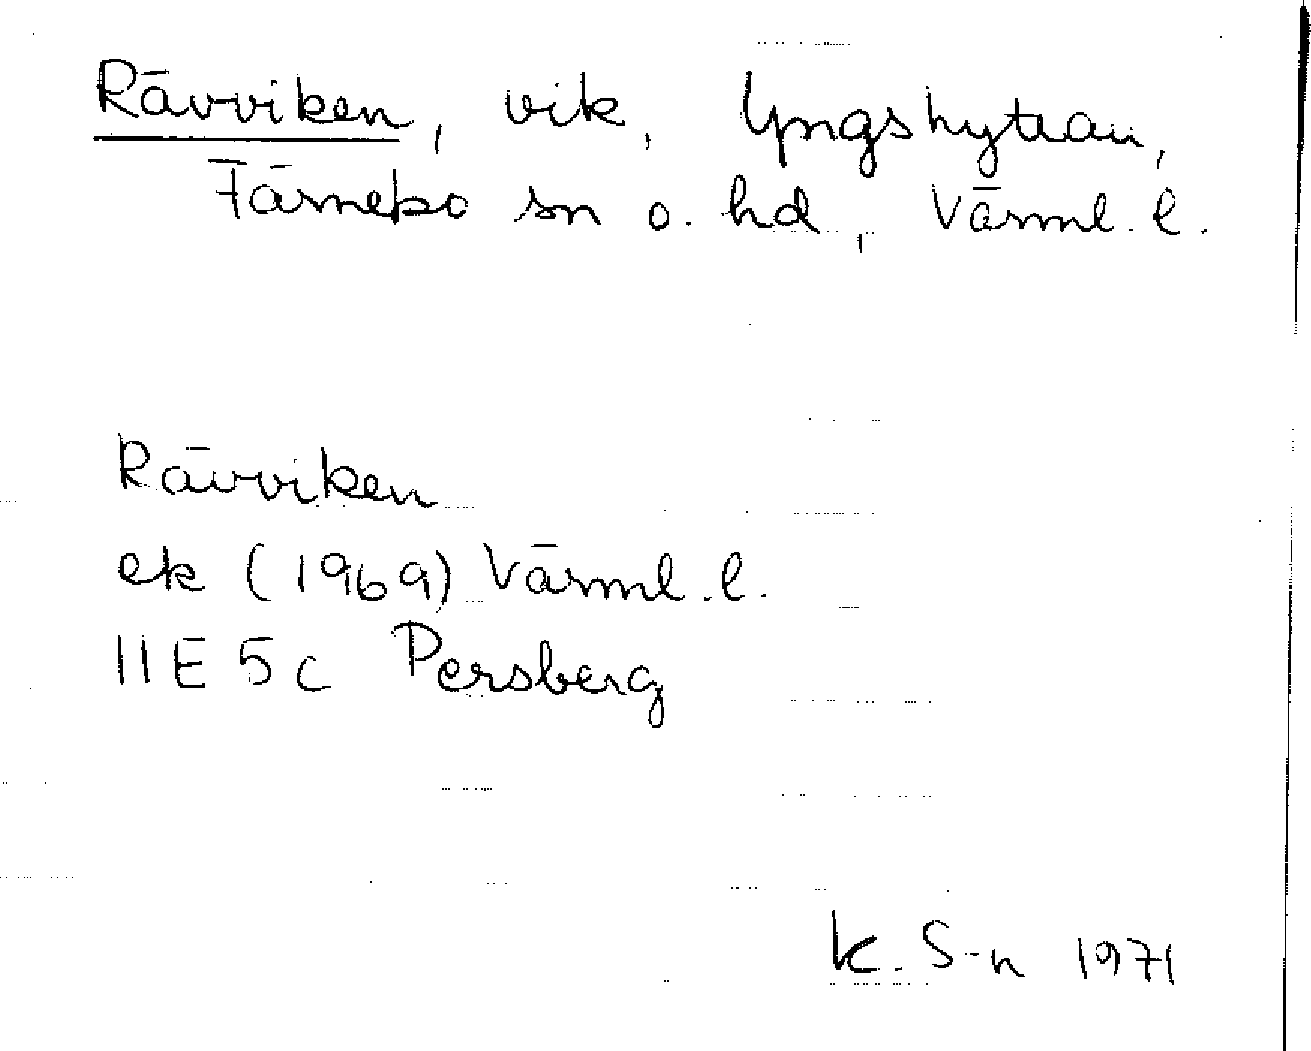 Rävviken, vik, Yngshyttan,
Färnebo sn o. hd, Värml. l.
Rävviken
ek (1969) Värml. l.
11E 5c Persberg
K. S-n 1971